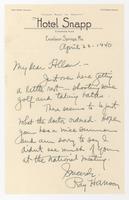 Hotel Snapp
Excelsior Springs, Mo.
April 22 - 1940
My dear
Just over here getting
a little rest - shooting some
golf and taking baths.
There seems to be just
what the doctor ordered. hope
you have a nice summer
and am sorry to say I
didn't see much of you
at the national meeting.
Sincerely,
Ray